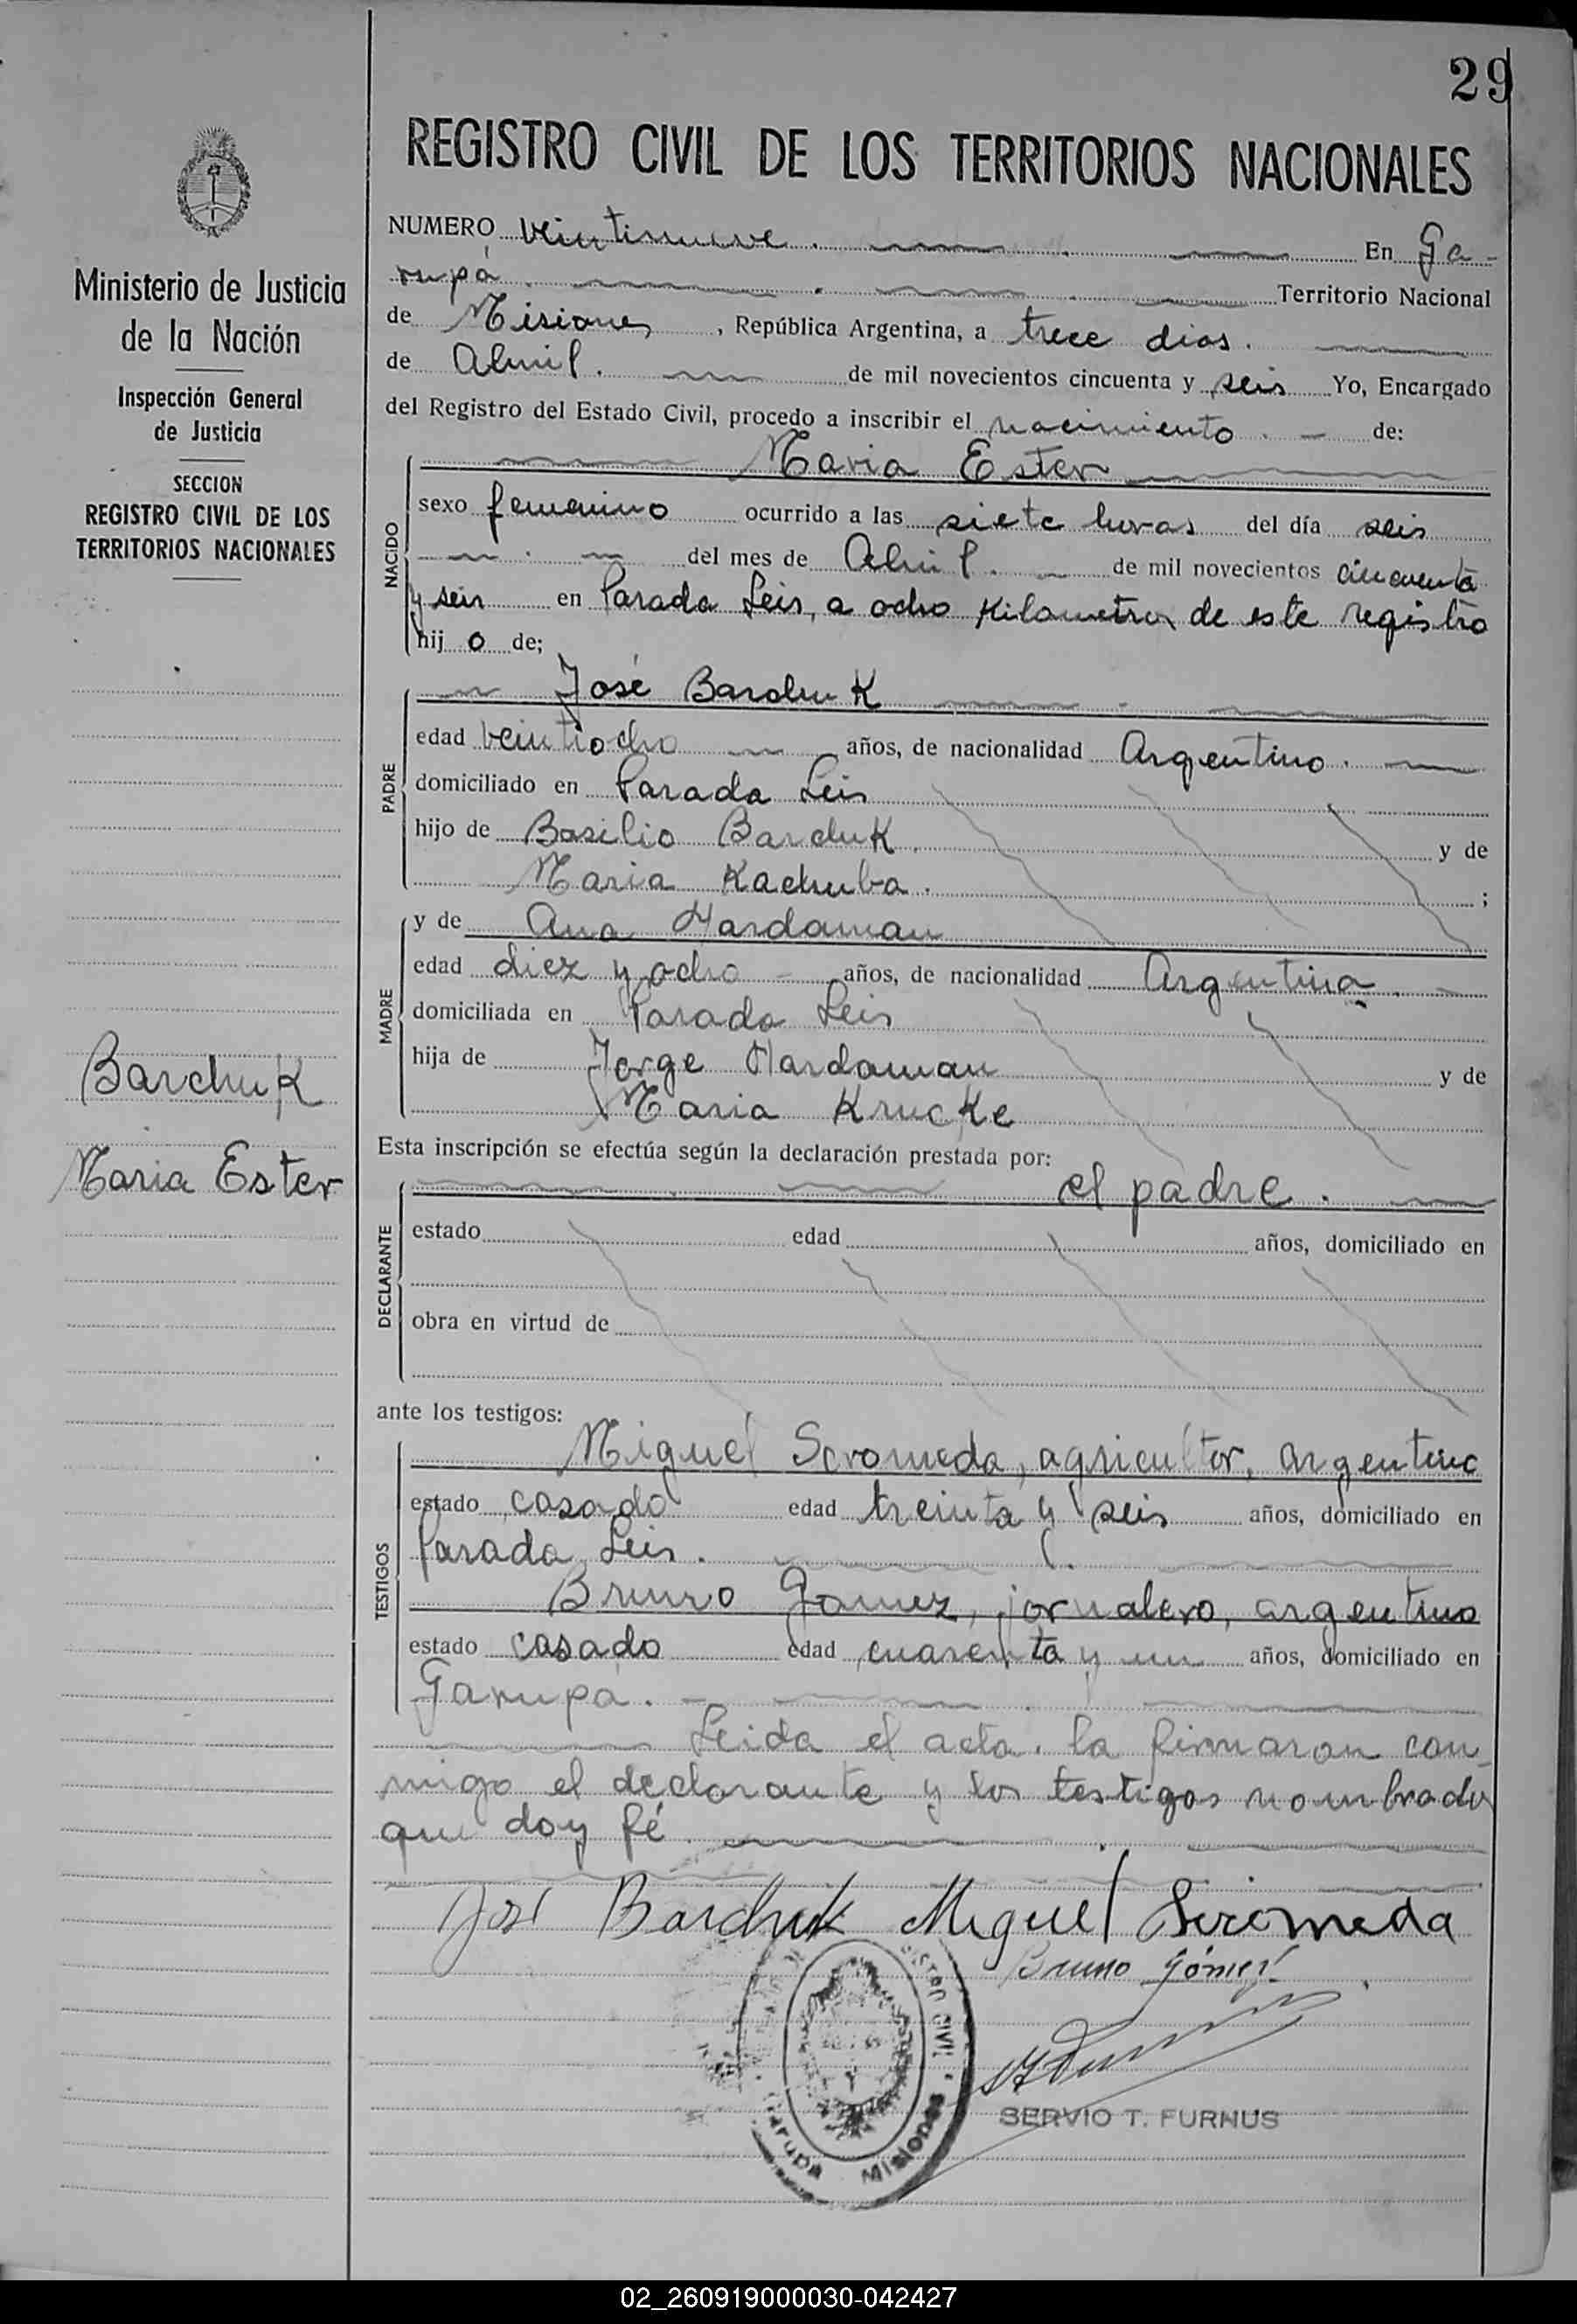 29
REGISTRO CIVIL DE LOS TERRITORIOS NACIONALES
Ministerio de Justicia
de la Nación
Inspección General
de Justicia
SECCION
REGISTRO CIVIL DE LOS
TERRITORIOS NACIONALES
Barchuk
Maria Ester
NUMERO veintinueve. En Ga-
rupá. Territorio Nacional
de Misiones, República Argentina, a trece dias.
de Abril. de mil novecientos cincuenta y seis Yo, Encargado
del Registro del Estado Civil, procedo a inscribir el nacimiento. de:
NACIDO
Maria Ester
sexo femenino ocurrido a las siete horas del día seis
del mes de Abril. de mil novecientos cincuenta
y seis en Parada Leis, a ocho Kilometros de este registro
hijo de;
PADRE
José Barchuk
edad veintiocho años, de nacionalidad Argentino.
domiciliado en Parada Leis
hijo de Basilio Barchuk. y de
Maria Kachuba. ;
MADRE
y de Ana Hardaman
edad diez y ocho años, de nacionalidad Argentina.
domiciliada en Parada Leis
hija de Jorge Hardaman y de
Maria Krucke
Esta inscripción se efectúa según la declaración prestada por:
DECLARANTE
el padre.
estado edad años, domiciliado en
obra en virtud de
ante los testigos:
TESTIGOS
Miguel Seromeda, agricultor, argentino
estado casado edad treinta y seis años, domiciliado en
Parada Leis.
Bruno Gomez, jornalero, argentino
estado casado edad cuarenta y un años, domiciliado en
Garupa.
Leida el acta. la firmaron con
migo el declarante y los testigos nombrados
que doy fé
José Barchuk Miguel Seromeda
Bruno Gómez
CIVIL
Garupa Misiones
SERVIO T. FURNUS
02_260919000030-042427